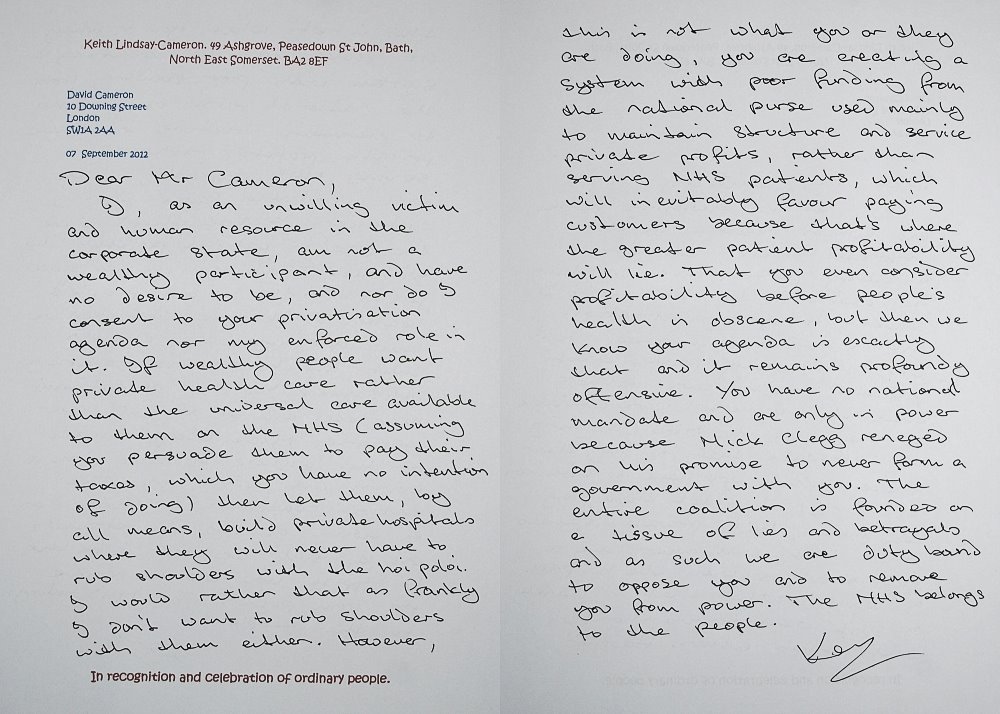 Keith Lindsay-Cameron. 49 Ashgrove, Peasedown St John, Bath,
North East Somerset. BA2 8EF
David Cameron
10 Downing Street
London
SW1A 2AA
07 September 2012
Dear Mr Cameron,
I, as an unwilling victim
and human resource in the
corporate state, am not a
wealthy participant, and have
no desire to be, and nor do I
consent to your privatisation
agenda nor my enforced role in
it. If wealthy people want
private health care rather
than the universal care available
to them on the NHS (assuming
you persuade them to pay their
taxes, which you have no intention
of doing) then let them, by
all means, build private hospitals
where they will never have to
rub shoulders with the hoi poloi.
I would rather that as frankly
I don't want to rub shoulders
with them either. However,
In recognition and celebration of ordinary people.
this is not what you or they
are doing, you are creating a
system with poor funding from
the national purse used mainly
to maintain structure and service
private profits, rather than
serving NHS patients, which
will inevitably favour paying
customers because that's where
the greater patient profitability
will lie. That you even consider
profitability before people's
health is obscene, but then we
know your agenda is exactly
that and it remains profoundy
offensive. You have no national
mandate and are only in power
because Nick Clegg reneged
on his promise to never form a
government with you. The
entire coalition is founded on
a tissue of lies and betrayals
and as such we are duty band
to oppose you and to remove
you from power. The NHS belongs
to the people.